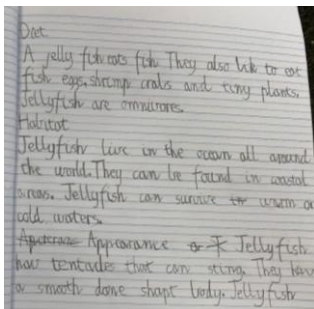 Diet
A jelly fish eats fish They also like to eat
fish eggs, shrimp crabs and tiny plants.
Jellyfish are omnivores.
Habitat
Jellyfish live in the ocean all around
the world. They can be found in coastal
areas. Jellyfish can survive in warm or
cold waters.
Appearance Jellyfish
hav tentacles that can sting. They hav
a smooth dome shapt body. Jellyfish